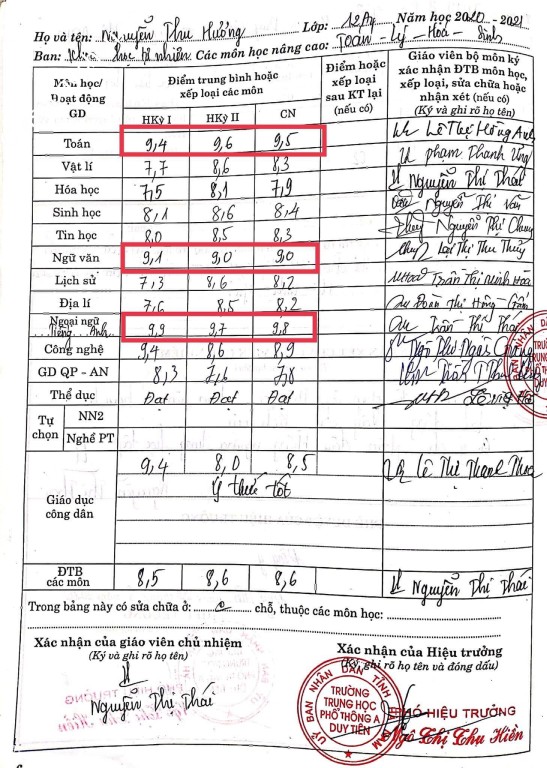 Họ và tên: Nguyễn Thu Hường Lớp: 12A4 Năm học 2020 - 2021
Ban: Khoa học tự nhiên Các môn học nâng cao: Toán - Lý - Hoá - Sinh
Môn học/ Hoạt động GD
Điểm trung bình hoặc xếp loại các môn
HKỳ I HKỳ II CN
Điểm hoặc xếp loại sau KT lại (nếu có)
Giáo viên bộ môn ký xác nhận ĐTB môn học, xếp loại, sửa chữa hoặc nhận xét (nếu có)
(Ký và ghi rõ họ tên)
Toán 9,4 9,6 9,5 Lê Thị Hồng
Vật lí 7,7 8,6 8,3 Phạm Thanh
Hóa học 7,5 8,1 7,9 Nguyễn Thị Thái
Sinh học 8,1 8,6 8,4 Nguyễn Thị Vân
Tin học 8,0 8,5 8,3 Nguyễn Thị
Ngữ văn 9,1 9,0 9,0 Lại Thị Thu Thủy
Lịch sử 7,3 8,6 8,2 Trần Thị Minh Hoà
Địa lí 7,6 8,5 8,2 Đoàn Thị Hồng
Ngoại ngữ Tiếng Anh 9,9 9,7 9,8 Trần Thị
Công nghệ 9,4 8,6 8,9
GD QP - AN 8,3 7,6 7,8
Thể dục Đạt Đạt Đạt
Tự chọn
NN2
Nghề PT
Giáo dục công dân
9,4 8,0 8,5 Lê Thị Thanh
Ý thức tốt
ĐTB các môn 8,5 8,6 8,6 Nguyễn Thị Thái
Trong bảng này có sửa chữa ở: chỗ, thuộc các môn học:
Xác nhận của giáo viên chủ nhiệm
(Ký và ghi rõ họ tên)
Nguyễn Thị Thái
Xác nhận của Hiệu trưởng
(Ký, ghi rõ họ tên và đóng dấu)
TRƯỜNG
TRUNG HỌC
PHỔ THÔNG A
DUY TIÊN
PHÓ HIỆU TRƯỞNG
Ngô Thị Thu Hiền